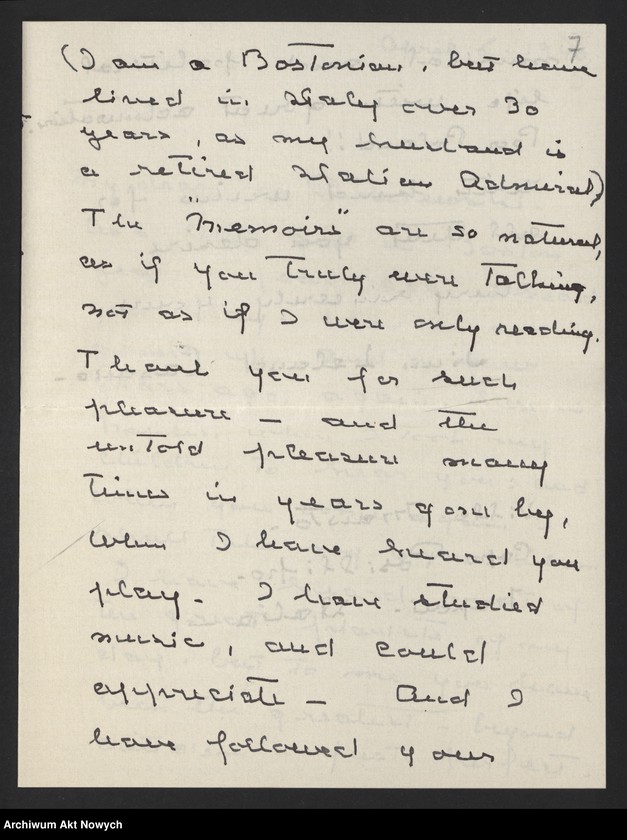 7
(I am a Bostonian, but have
lived in Italy over 30
years, as my husband is
a retired Italian Admiral)
The "Memoirs" are so natural,
as if you truly were talking,
not as if I were only reading.
Thank you for such
pleasure — and the
untold pleasure many
times in years gone by,
when I have heard you
play. I have studied
music, and could
appreciate — And I
have followed your
Archiwum Akt Nowych